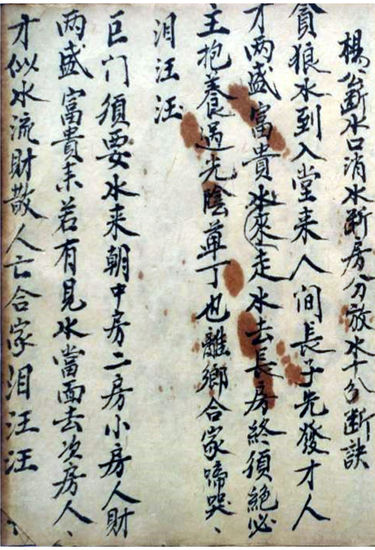 楊公斷水口消水斷房分放水十八斷訣
貪狼水到入堂来人间長子先發才人
才两盛富貴水來走水去長房终須絶必
主抱養過光陰单丁也離鄉合家啼哭、
泪汪汪
巨门須要水来朝中房二房小房人財
两盛富貴来若有見水當面去次房人、
才似水流財散人亡合家泪汪汪